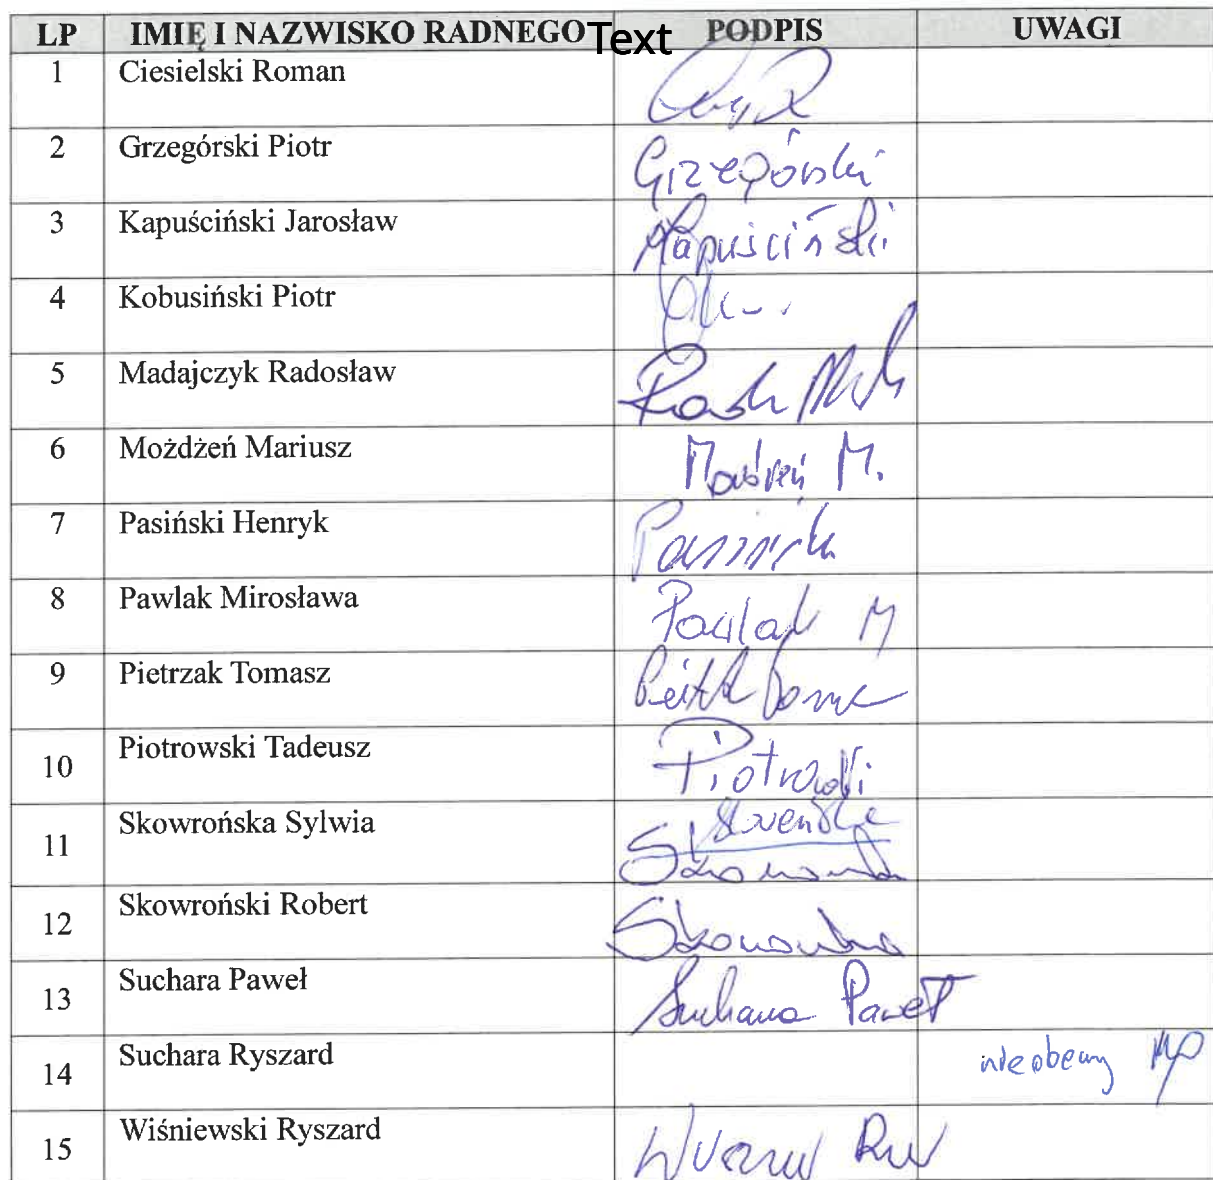 LP IMIĘ I NAZWISKO RADNEGO Text PODPIS UWAGI
1 Ciesielski Roman
2 Grzegórski Piotr Grzegórski
3 Kapuściński Jarosław Kapuściński
4 Kobusiński Piotr
5 Madajczyk Radosław
6 Możdżeń Mariusz Możdżeń M.
7 Pasiński Henryk Pasiński
8 Pawlak Mirosława Pawlak M
9 Pietrzak Tomasz
10 Piotrowski Tadeusz Piotrowski
11 Skowrońska Sylwia
12 Skowroński Robert
13 Suchara Paweł Suchara Paweł
14 Suchara Ryszard nieobecny MP
15 Wiśniewski Ryszard